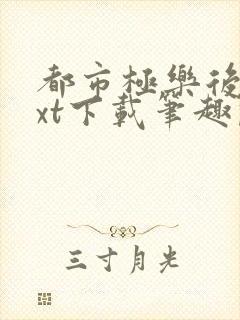 都市極樂後
xt下載筆趣
三寸月光